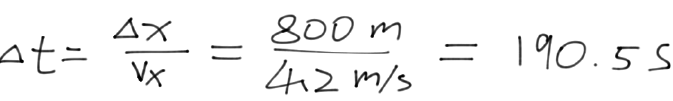 Δt = Δx/Vx = 800 m / 4.2 m/s = 190.5 s